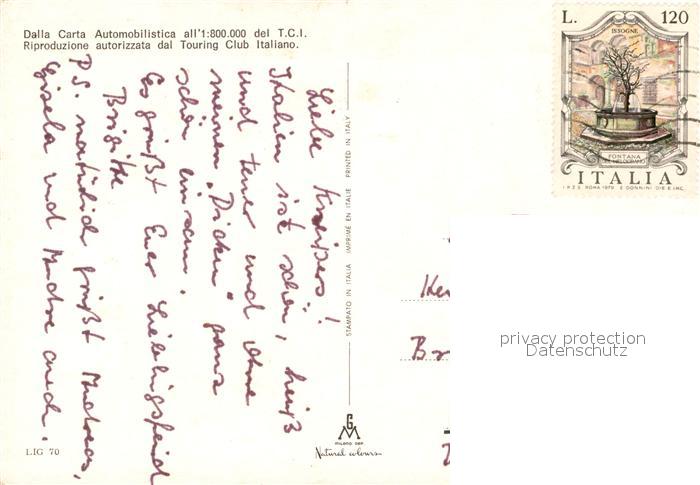 Dalla Carta Automobilistica all'1:800.000 del T.C.I.
Riproduzione autorizzata dal Touring Club Italiano.
Liebe
Italien ist schön, heiß
und teuer und ohne
meinen „Dicken" ganz
schön einsam.
Es grüßt Euer Lieblingsfeind
Brigitte
P.S. natürlich grüßt Andreas,
Gisela und auch.
STAMPATO IN ITALIA IMPRIMÉ EN ITALIE PRINTED IN ITALY
LIG 70
G
M
MILANO DEP.
Natural colours
L. 120
ISSOGNE
FONTANA
DEL MELOGRANO
ITALIA
I.P.Z.S. ROMA 1979 E. DONNINI DIS. E INC.
privacy protection
Datenschutz